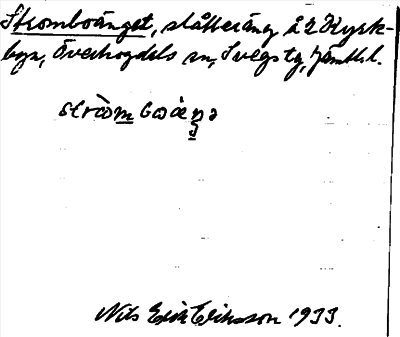 Stromboänget, slåtteräng å 2 Kyrk-
byn, Överhogdals sn, Svegs tg, Jämtl. l.
Nils Erik Eriksson 1933.